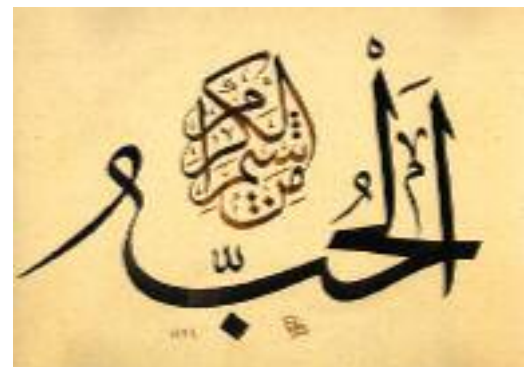 الحُبُّ
من شيم الكرام